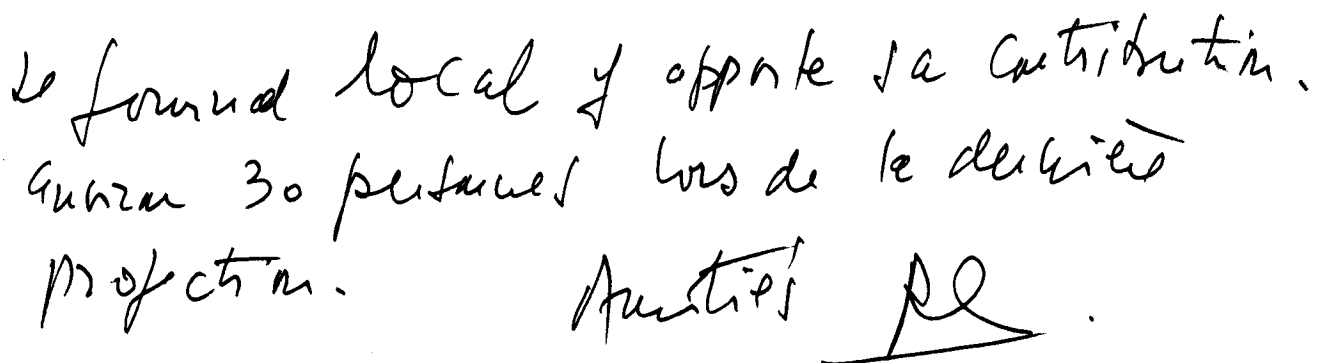 Le journal local y apporte sa contribution.
environ 30 personnes lors de la dernière
projection. Amitiés